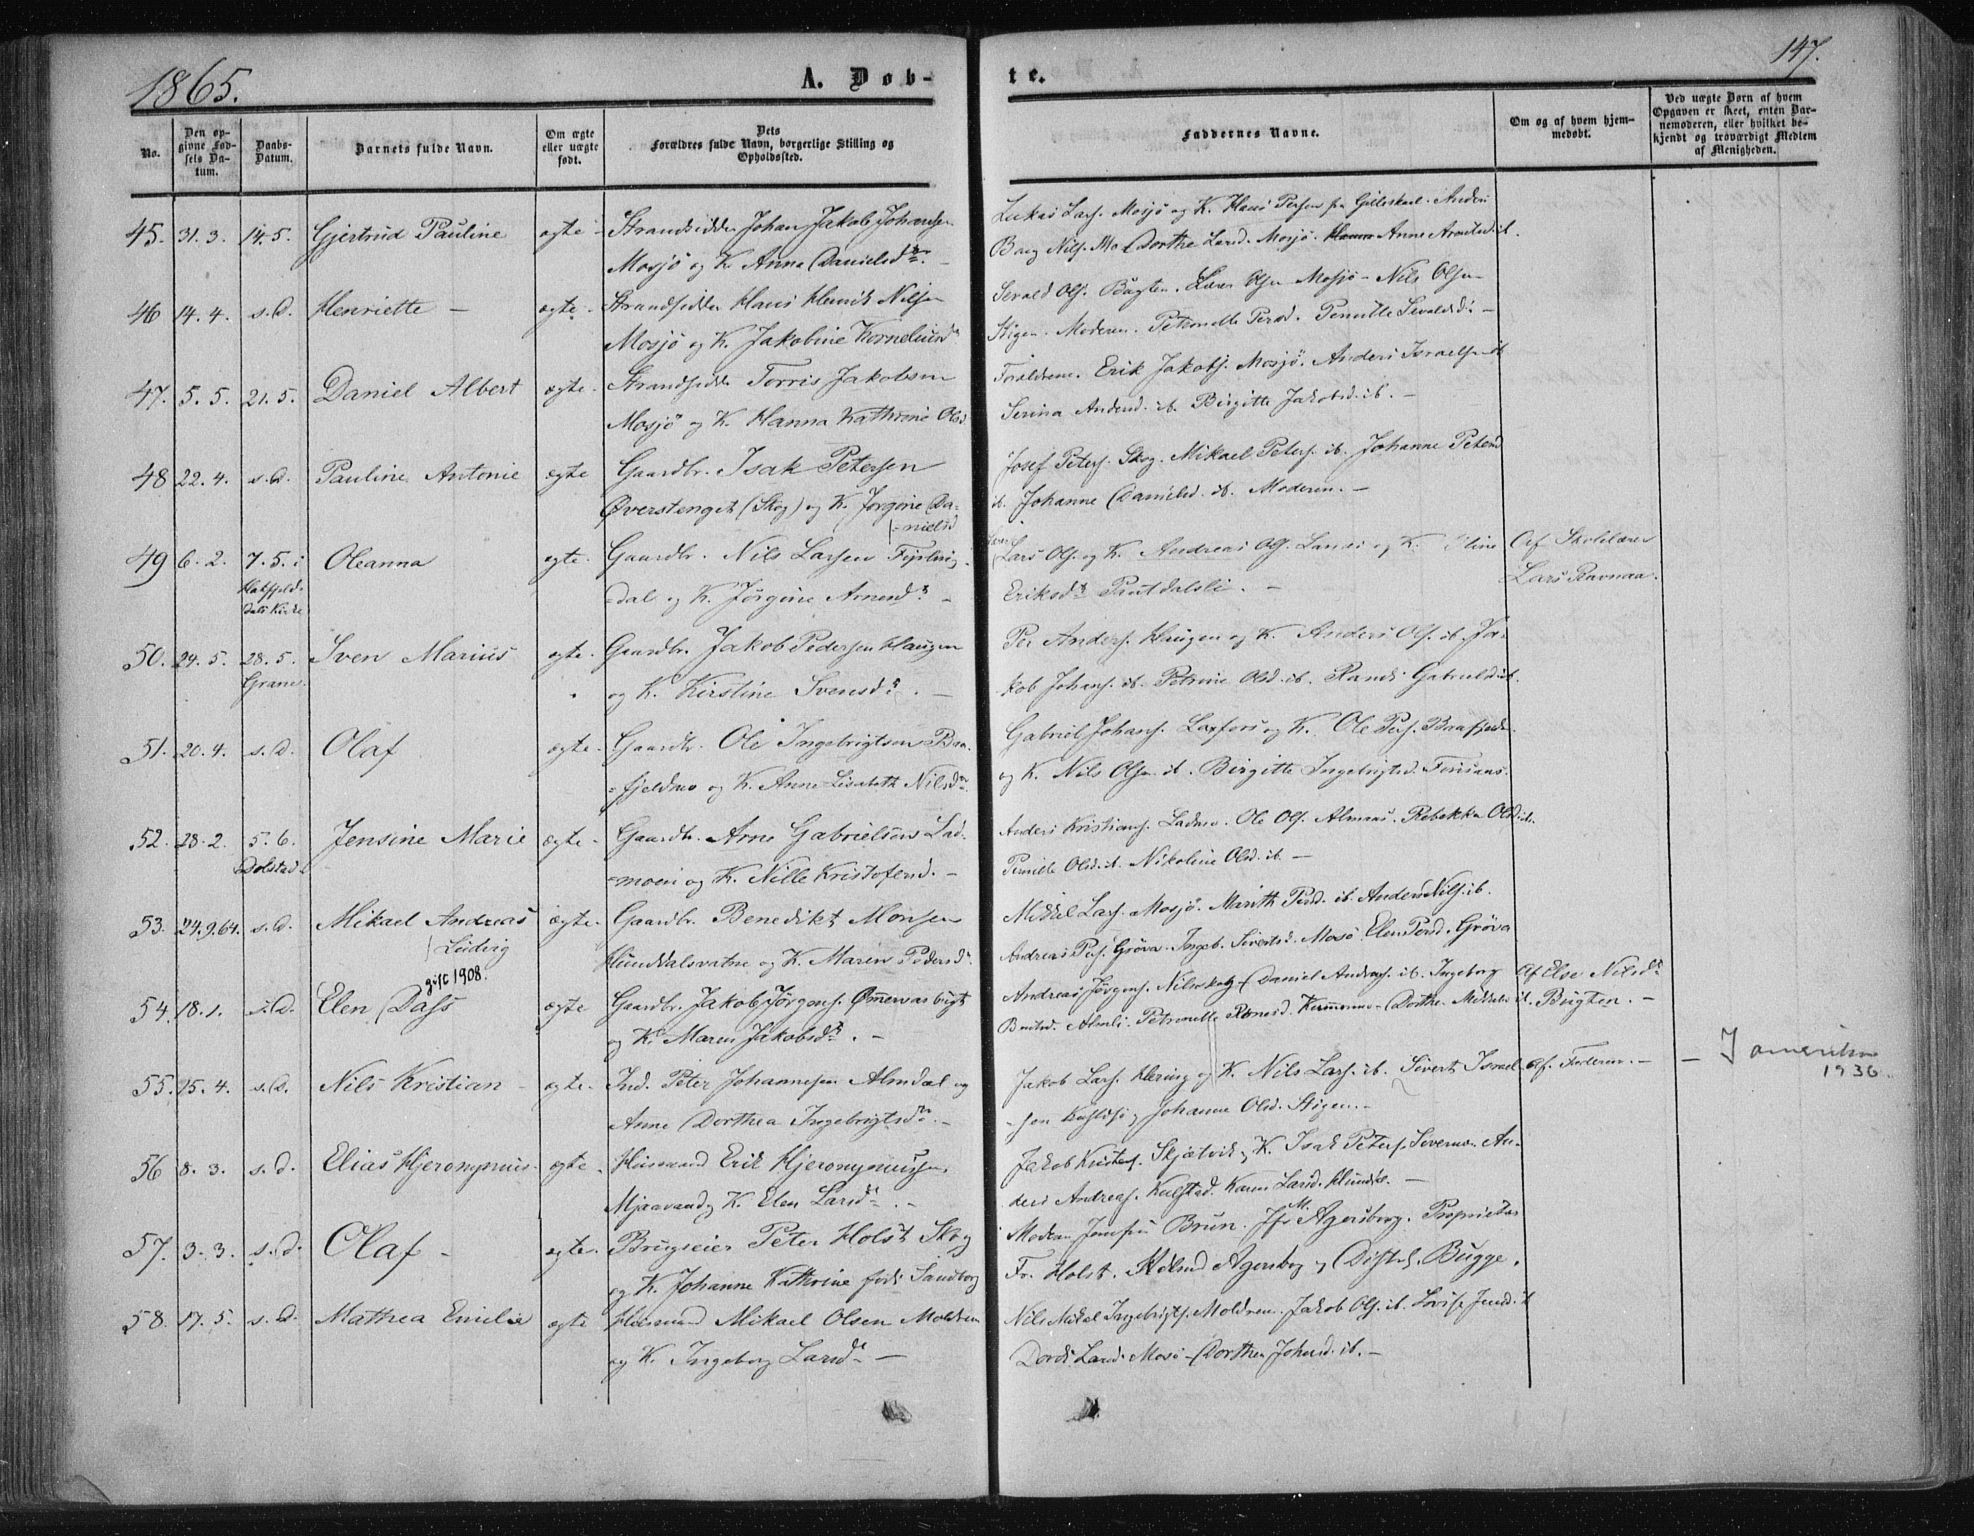 1865.
A. Døb-
te.
147.
No.
Den op-
givne Fød-
sels Da-
tum.
Daabs-
Datum.
Barnets fulde Navn.
Om ægte
eller uægte
født.
Dets
Forældres fulde Navn, borgerlige Stilling og
Opholdssted.
Faddernes Navne.
Om og af hvem hjem-
medøbt.
Ved uægte Børn af hvem
Opgaven er skeet, enten Bar-
nemoderen, eller hvilket be-
kjendt og troværdigt Medlem
af Menigheden.
45. 31. 3. 14. 5. Gjertrud Pauline ægte - Strandsidder Johan Jakob Johansen
Mosjö og K. Anna Danielsdr. -
Lukas Lars. Mosjö og K. Hans Persen fra Gilleskaal. Anders
Nils. Mo. Dorthe Larsd. Mosjö. Anne ib.
46 14. 4. s. D. Henriette - ægte - Strandsidder Hans Henrik Nilsen
Mosjö og K. Jakobine Korneliusdr
Sevald Ols. Bugten. Olsen Mosjö - Nils Olsen
Stigen. Moderen. Petronelle Persd. Pernille Sevaldsd. -
47. 5. 5. 21. 5. Daniel Albert ægte - Strandsidder Torris Jakobsen
Mosjö og K. Hanna Kathrine Olsd
Forældrene. Erik Jakobs. Mosjö. Anders Israelsen ib
Serina Andersd. ib. Birgitte Jakobsd. ib. -
48 22. 4. s. D. Pauline Antonie ægte Gaardbr. Isak Petersen
Øverstenget (Skog) og K. Jørgine Da-
=nielsd
Josef Peters. Skog. Mikael Peters. ib. Johanne Petersd
ib. Johanne Danielsd. ib. Moderen. -
49 6. 2. 7. 5. i Oleanna ægte - Gaardbr. Nils Larsen Fiplin-
Hatfjeld-
dals Kirke
=dal og K. Jørgine Arnesdr -
Lars Ols. og K. Andreas Ols. og K. Eline
Eriksdr -
Af Skolelærer
Lars Ravnaa.
50. 24. 5. 28. 5. Sven Marius ægte - Gaardbr. Jakob Pedersen Haugen
Grane.
og K. Kirstine Svensdr. -
Per Anders. Haugen og K. Anders Ols. ib. Ja-
kob Johans. ib. Petrine Olsd. ib. Randi Gabrielsd. ib.
51. 20. 4. s. D. Olaf ægte - Gaardbr. Ole Ingebrigtsen Baa-
=fjeldmo og K. Anne Lisabeth Nilsdr.
Gabriel Johans. Laxfors og K. Ole Pers. Baafjeldm.
og K. Nils Olsen ib. Birgitte Ingebrigtsd.
52. 28. 2. 5. 6. Jensine Marie ægte - Gaardbr. Arne Gabrielsen Lad-
Dolstad
=moen og K. Nille Kristofersd. -
Anders Kristians. Ladmo. Ole Ols. Almaas. Rebekka Olsd. ib.
Pernille Olsd. ib. Nikoline Olsd. ib. -
53. 24. 9. 64. s. D. Mikael Andreas ægte - Gaardbr. Benedikt Monsen
Ludvig
Hunddalsvatne og K. Maren Pedersdr
Mikkel Lars. Mosjö. Marith Persd. ib. Anders Nils. ib.
Andreas Pers. Grøva. Ingeb. Sivertsd. Mosö. Elen Persd. Grøva
gift 1908.
54. 18. 1. s. D. Elen Dass ægte Gaardbr. Jakob Jørgens. Ømmervasbugt
og K. Maren Jakobsdr. -
Andreas Jørgens. Nilsskog - Daniel Andreas. ib. Ingeborg
Almli. Petronelle - Dorthe ib.
Af Else Nilsdr
Bugten. -
55. 15. 4. s. D. Nils Kristian - ægte - Ind. Peter Johannesen Almdal og
Anne Dorthea Ingebrigtsdr. -
Jakob Lars. Hering og K. Nils Lars. ib. Sivert Israel-
-sen og Johanne Olsd. Stigen. -
af Faderen. -
- I amerika
1936.
56 8. 3. s. d. Elias Hjeronymus - ægte - Huusmand Erik Hjeronymussen
Mjaavand og K. Elen Larsdr. -
Jakob Skjælvik og K. Isak Peters. An-
ders Andreas. Kulstad. Karen Larsd. -
57. 3. 3. s. d. Olaf - ægte - Brugseier Peter Holst Skog
og K. Johanne Kathrine født Sandborg
Madam Brun. Jfr M. Agersborg. Proprietær
Fr. Holst. Agersborg og Bugge.
58. 17. 5. s. D. Mathea Emilie ægte Huusmand Mikael Olsen Moldren
og K. Ingeborg Larsdr. -
Nils Mikal Ingebrigts. Moldren. Jakob Ols. ib. Lovise Jensd. ib
Larsd. Mosö - Dorthea Johansd. ib. -